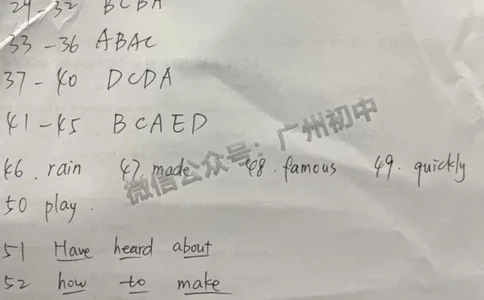 29-32 BCBA
33-36 ABAC
37-40 DCDA
41-45 BCAED
46. rain 47. made 48. famous 49. quickly
50 play.
51 Have heard about
52 how to make
微信公众号：广州初中